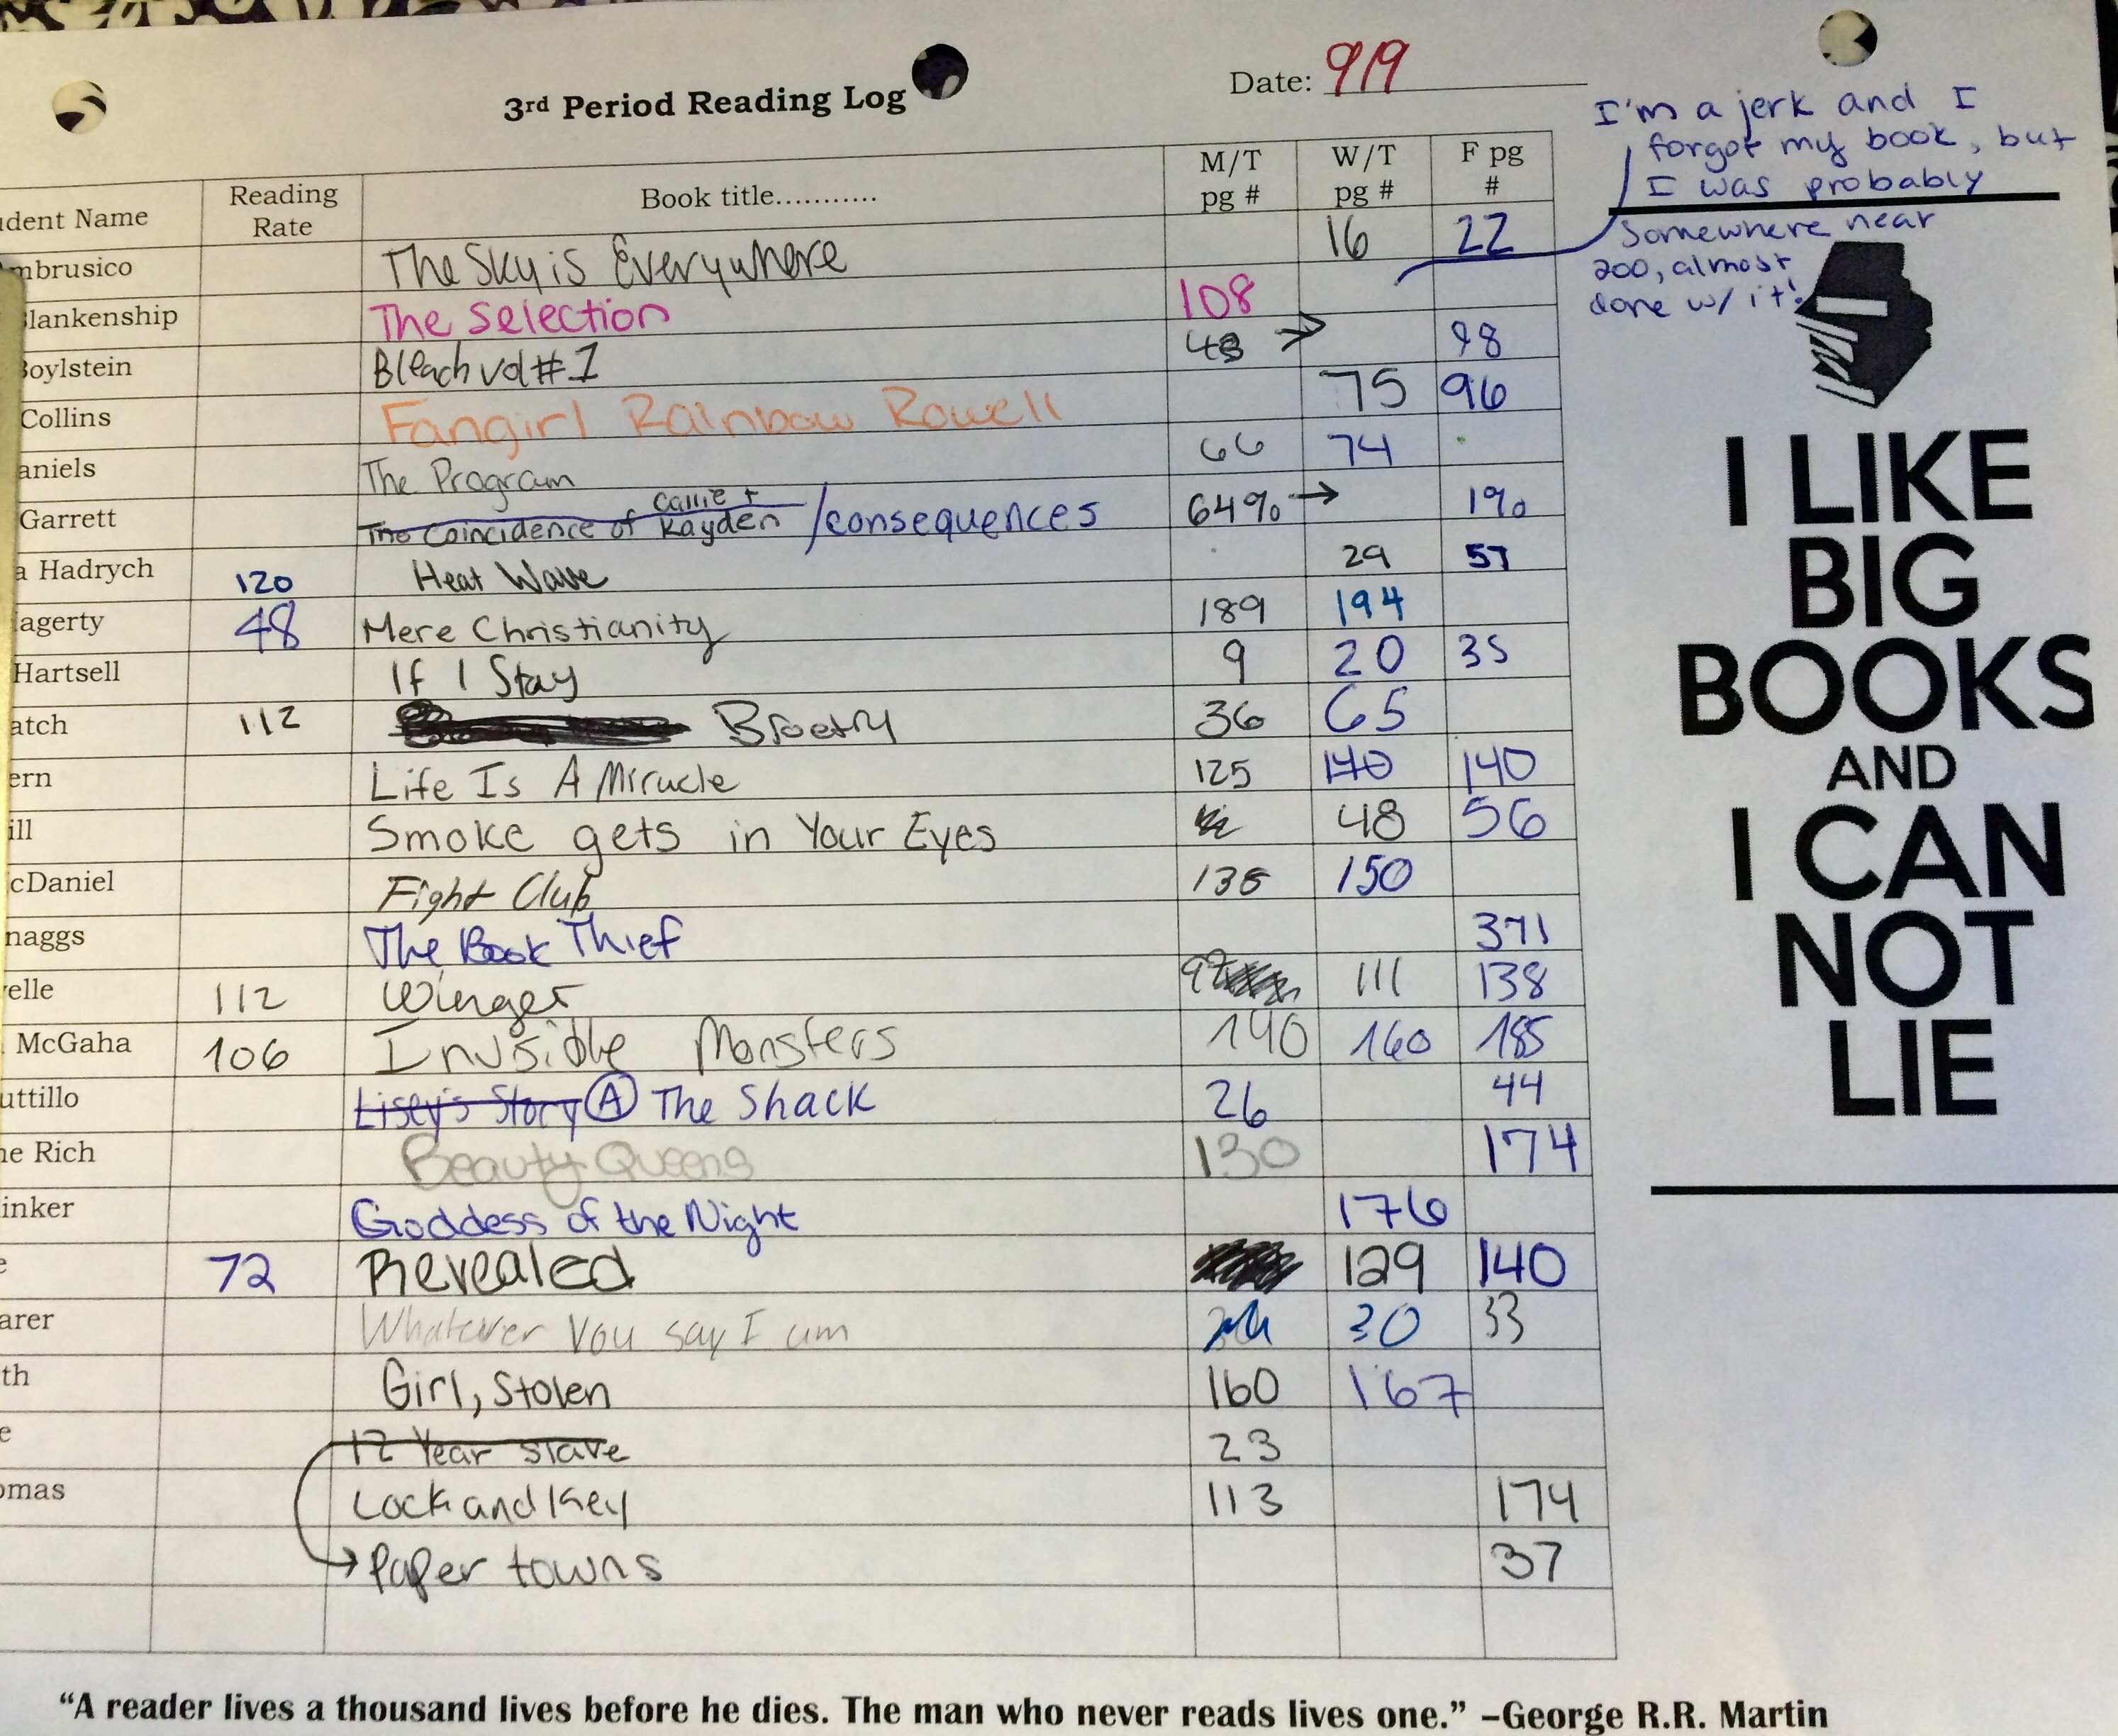 3rd Period Reading Log
Date: 9/9
I'm a jerk and I
forgot my book, but
I was probably
somewhere near
200, almost
done w/ it!
dent Name Reading Rate Book title........... M/T pg # W/T pg # F pg #
mbrusico The Sky is Everywhere 16 22
lankenship The Selection 108
Boylstein Bleach vol #1 48 → 98
Collins Fangirl Rainbow Rowell 75 96
aniels The Program 66 74
Garrett The Coincidence of Callie + Kayden /consequences 64% → 1%
a Hadrych 120 Heat Wave 29 57
agerty 48 Mere Christianity 189 194
Hartsell If I Stay 9 20 35
atch 112 Broetry 36 65
ern Life Is A Miracle 125 140 140
ill Smoke gets in Your Eyes 48 56
cDaniel Fight Club 150
naggs The Book Thief 371
elle 112 Winger 111 138
McGaha 106 Invisible Monsters 140 160 185
uttillo Lisey's Story A The Shack 26 44
ne Rich Beauty Queens 130 174
inker Goddess of the Night 176
e 72 Revealed 129 140
arer Whatever You say I am 30 33
th Girl, Stolen 160 167
e 12 Year Slave 23
omas Lock and Key 113 174
→ Paper towns 37
I LIKE
BIG
BOOKS
AND
I CAN
NOT
LIE
“A reader lives a thousand lives before he dies. The man who never reads lives one.” –George R.R. Martin